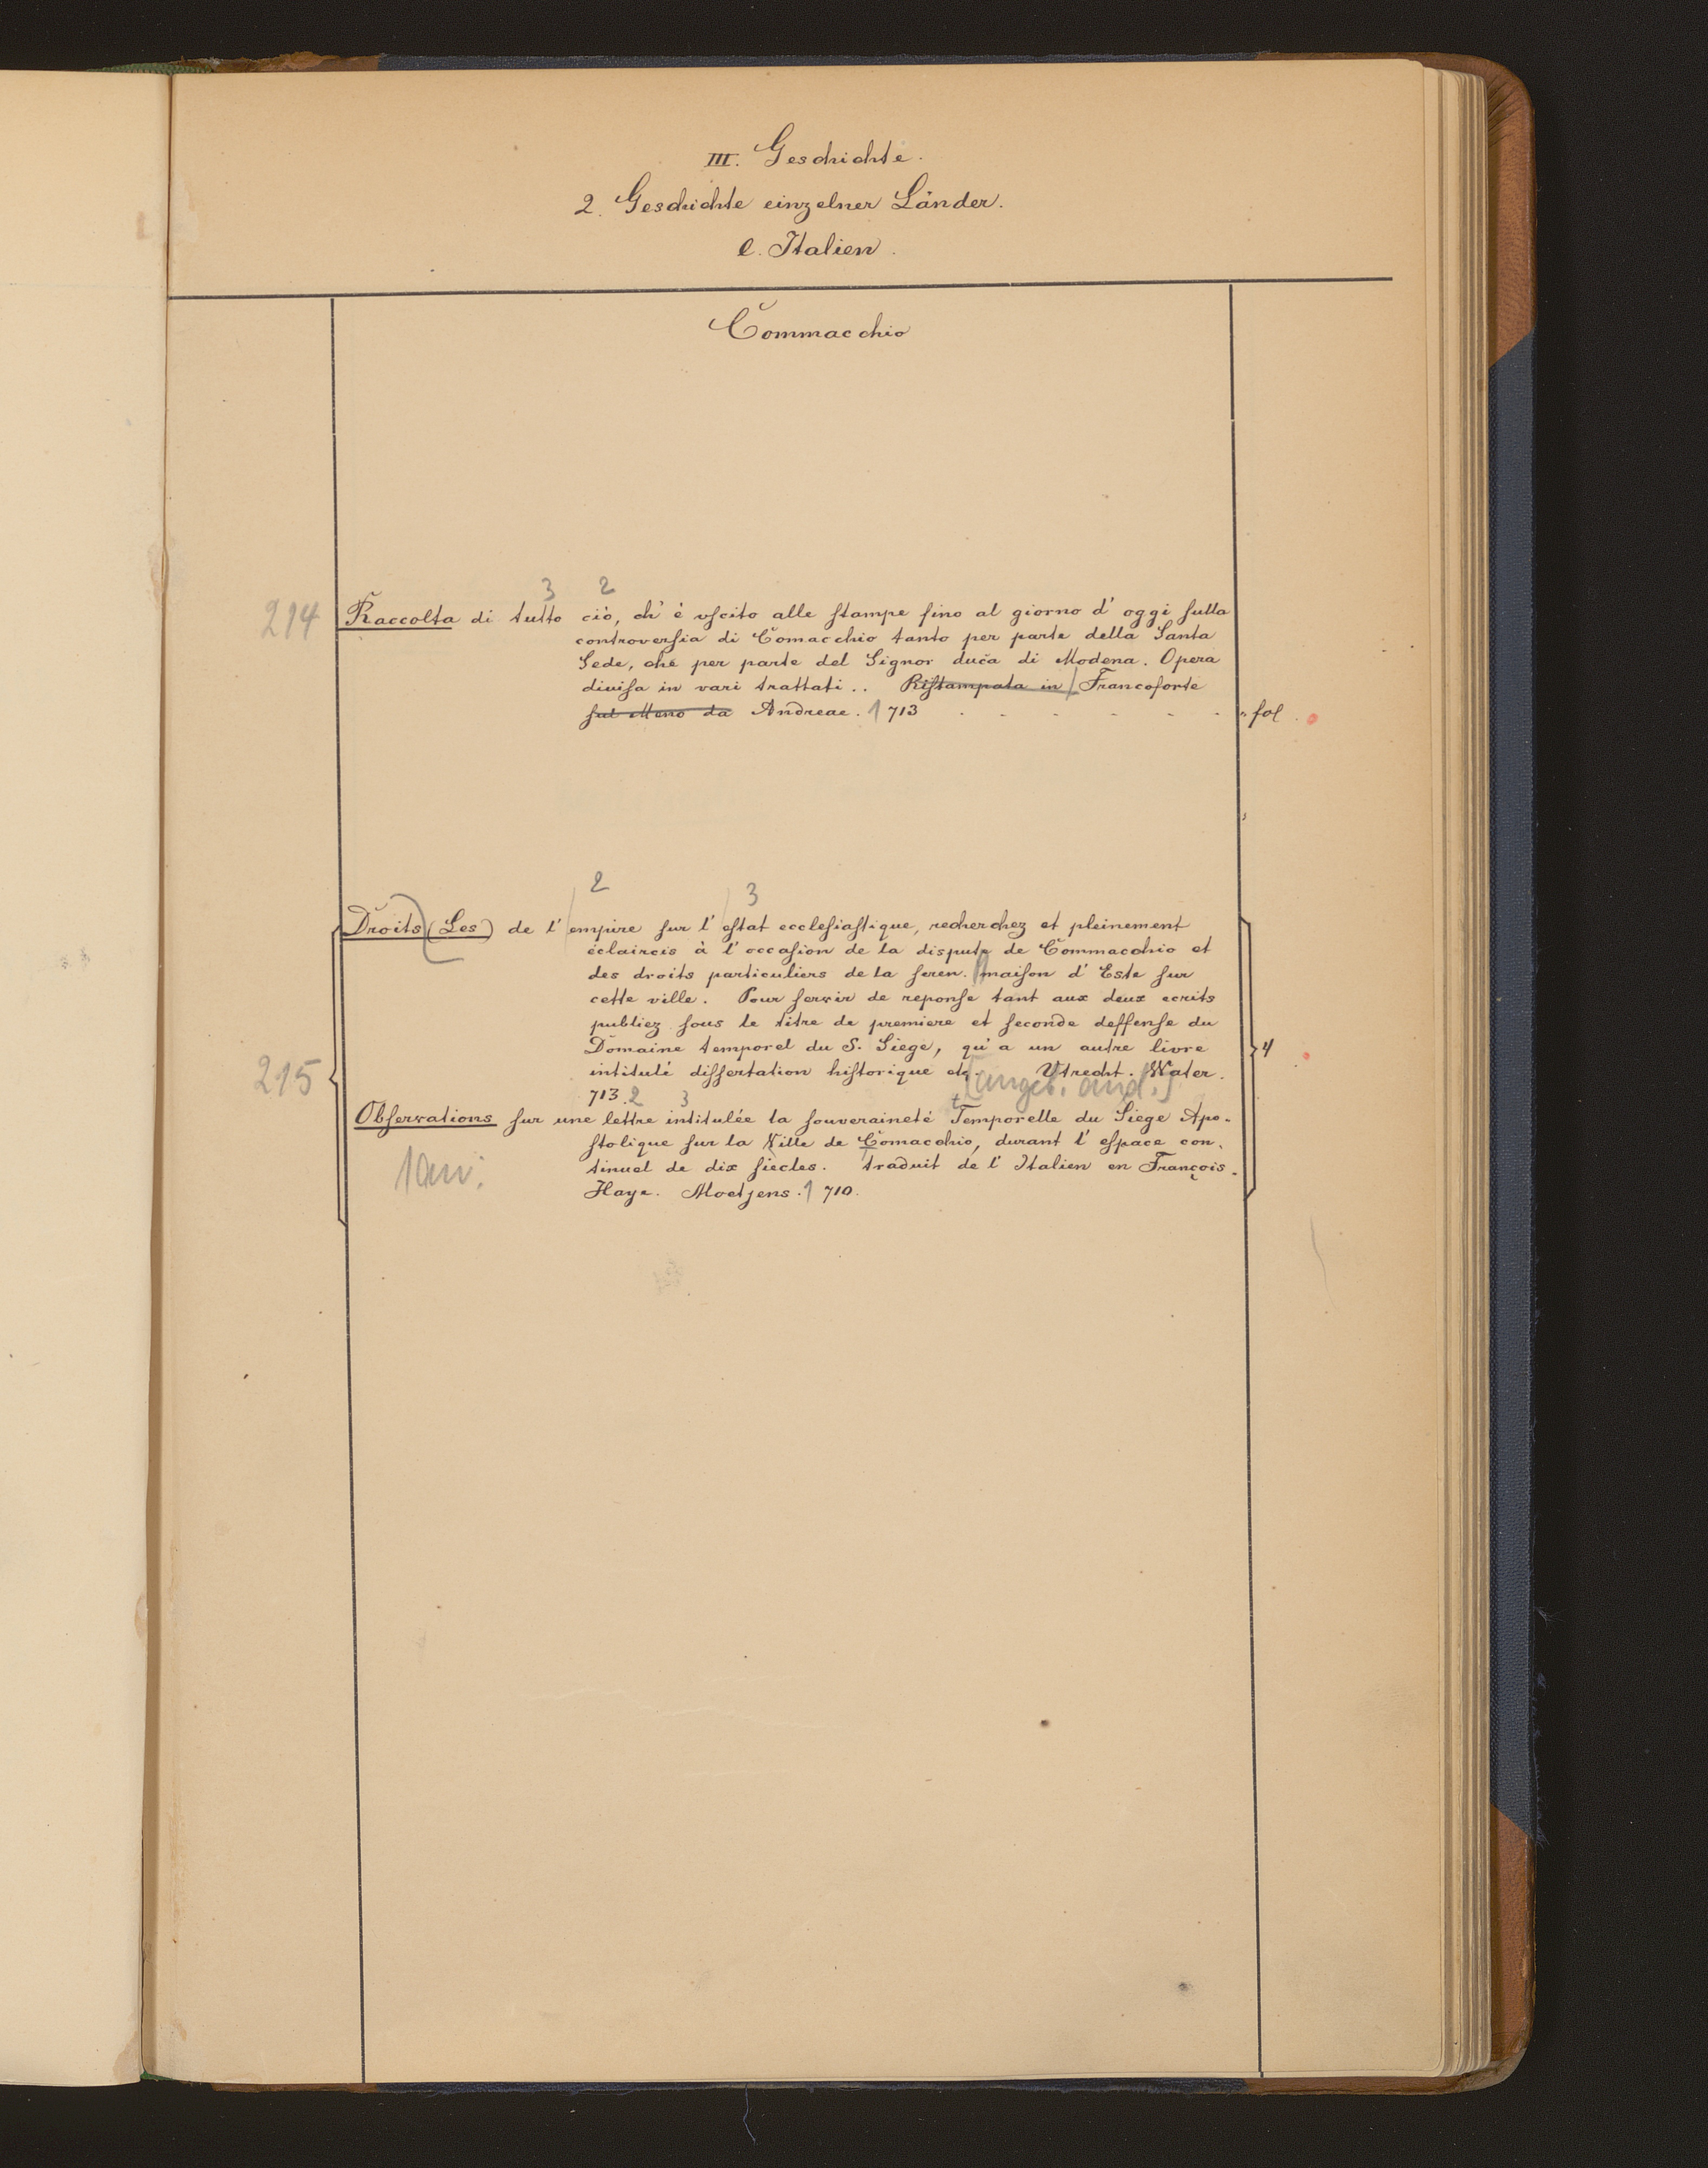 III. Geschichte.
2. Geschichte einzelner Länder.
e. Italien.
Commacchio
3 2
214 Raccolta di tutto ciò, ch' è uſcito alle ſtampe ſino al giorno d' oggi ſulla
controverſia di Comacchio tanto per parte della Santa
Sede, che per parte del Signor duca di Modena. Opera
diviſa in vari trattati.. Riſtampata in Francoforte
ſul Meno da Andreae. 1713 " fol.
2 3
Droits (Les) de l' empire ſur l' eſtat eccleſiaſtique, recherchez et pleinement
éclaircis à l' occaſion de la dispute de Commacchio et
des droits particuliers de la ſeren. maiſon d' Este ſur
cette ville. Pour ſervir de reponſe tant aux deux ecrits
publiez ſous le titre de premiere et ſeconde deffenſe du
Domaine temporel du S. Siege, qu' a un autre livre 4
215 intitulé diſſertation hiſtorique etc. Utrecht. Water.
[angeb. and.]
713. 2 3
Obſervations ſur une lettre intitulée la ſouveraineté Temporelle du Siege Apo-
t
ſtolique ſur la Ville de Comacchio, durant l' eſpace con-
tinuel de dix ſiecles. traduit de l' Italien en François.
Haye. Moetjens. 1710.